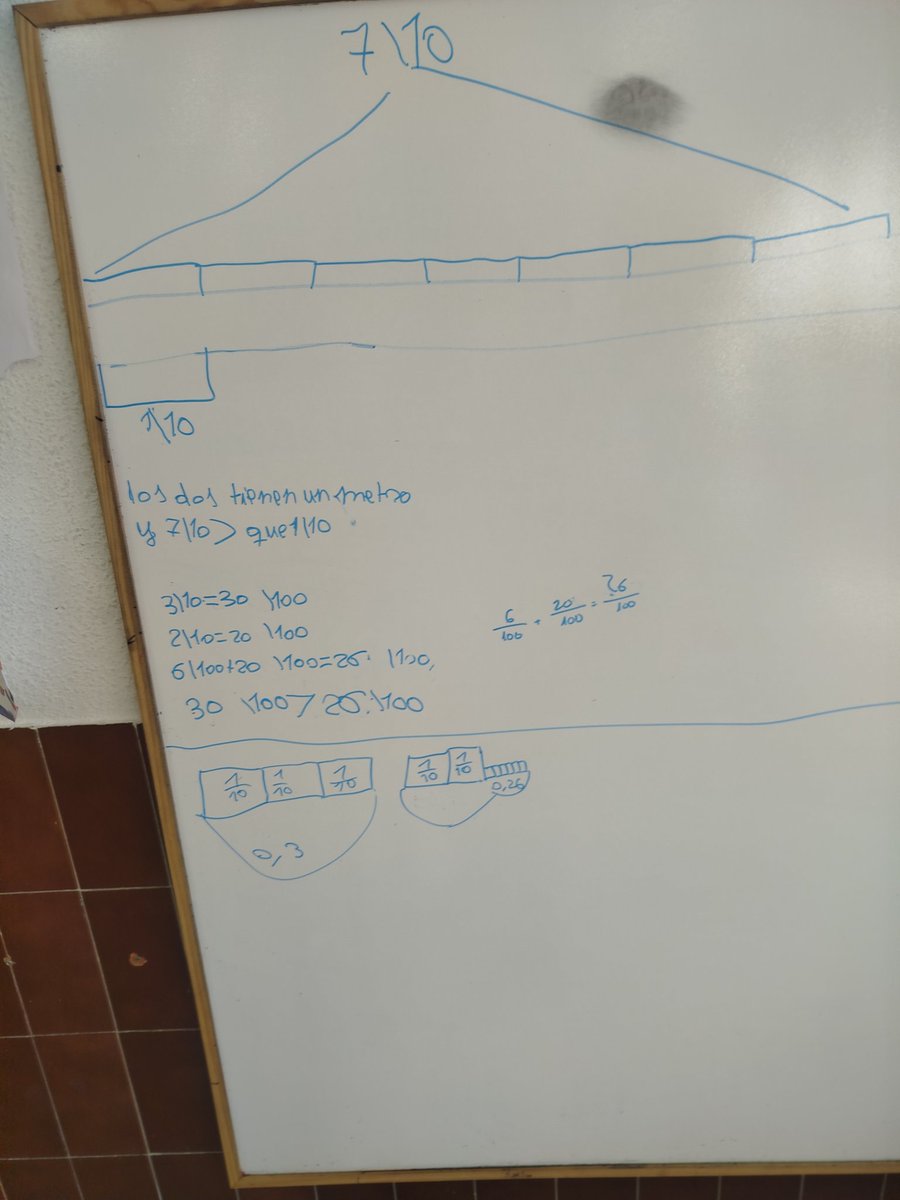 7\10
1\10
los dos tienen un metro
y 7\10 > que 1\10
3\10=30 \100
2\10=20 \100
6\100+20 \100=26 \100,
30 \100 > 26 \100
6/100 + 20/100 = 26/100
1/10 1/10 1/10
0,3
1/10 1/10
0,26